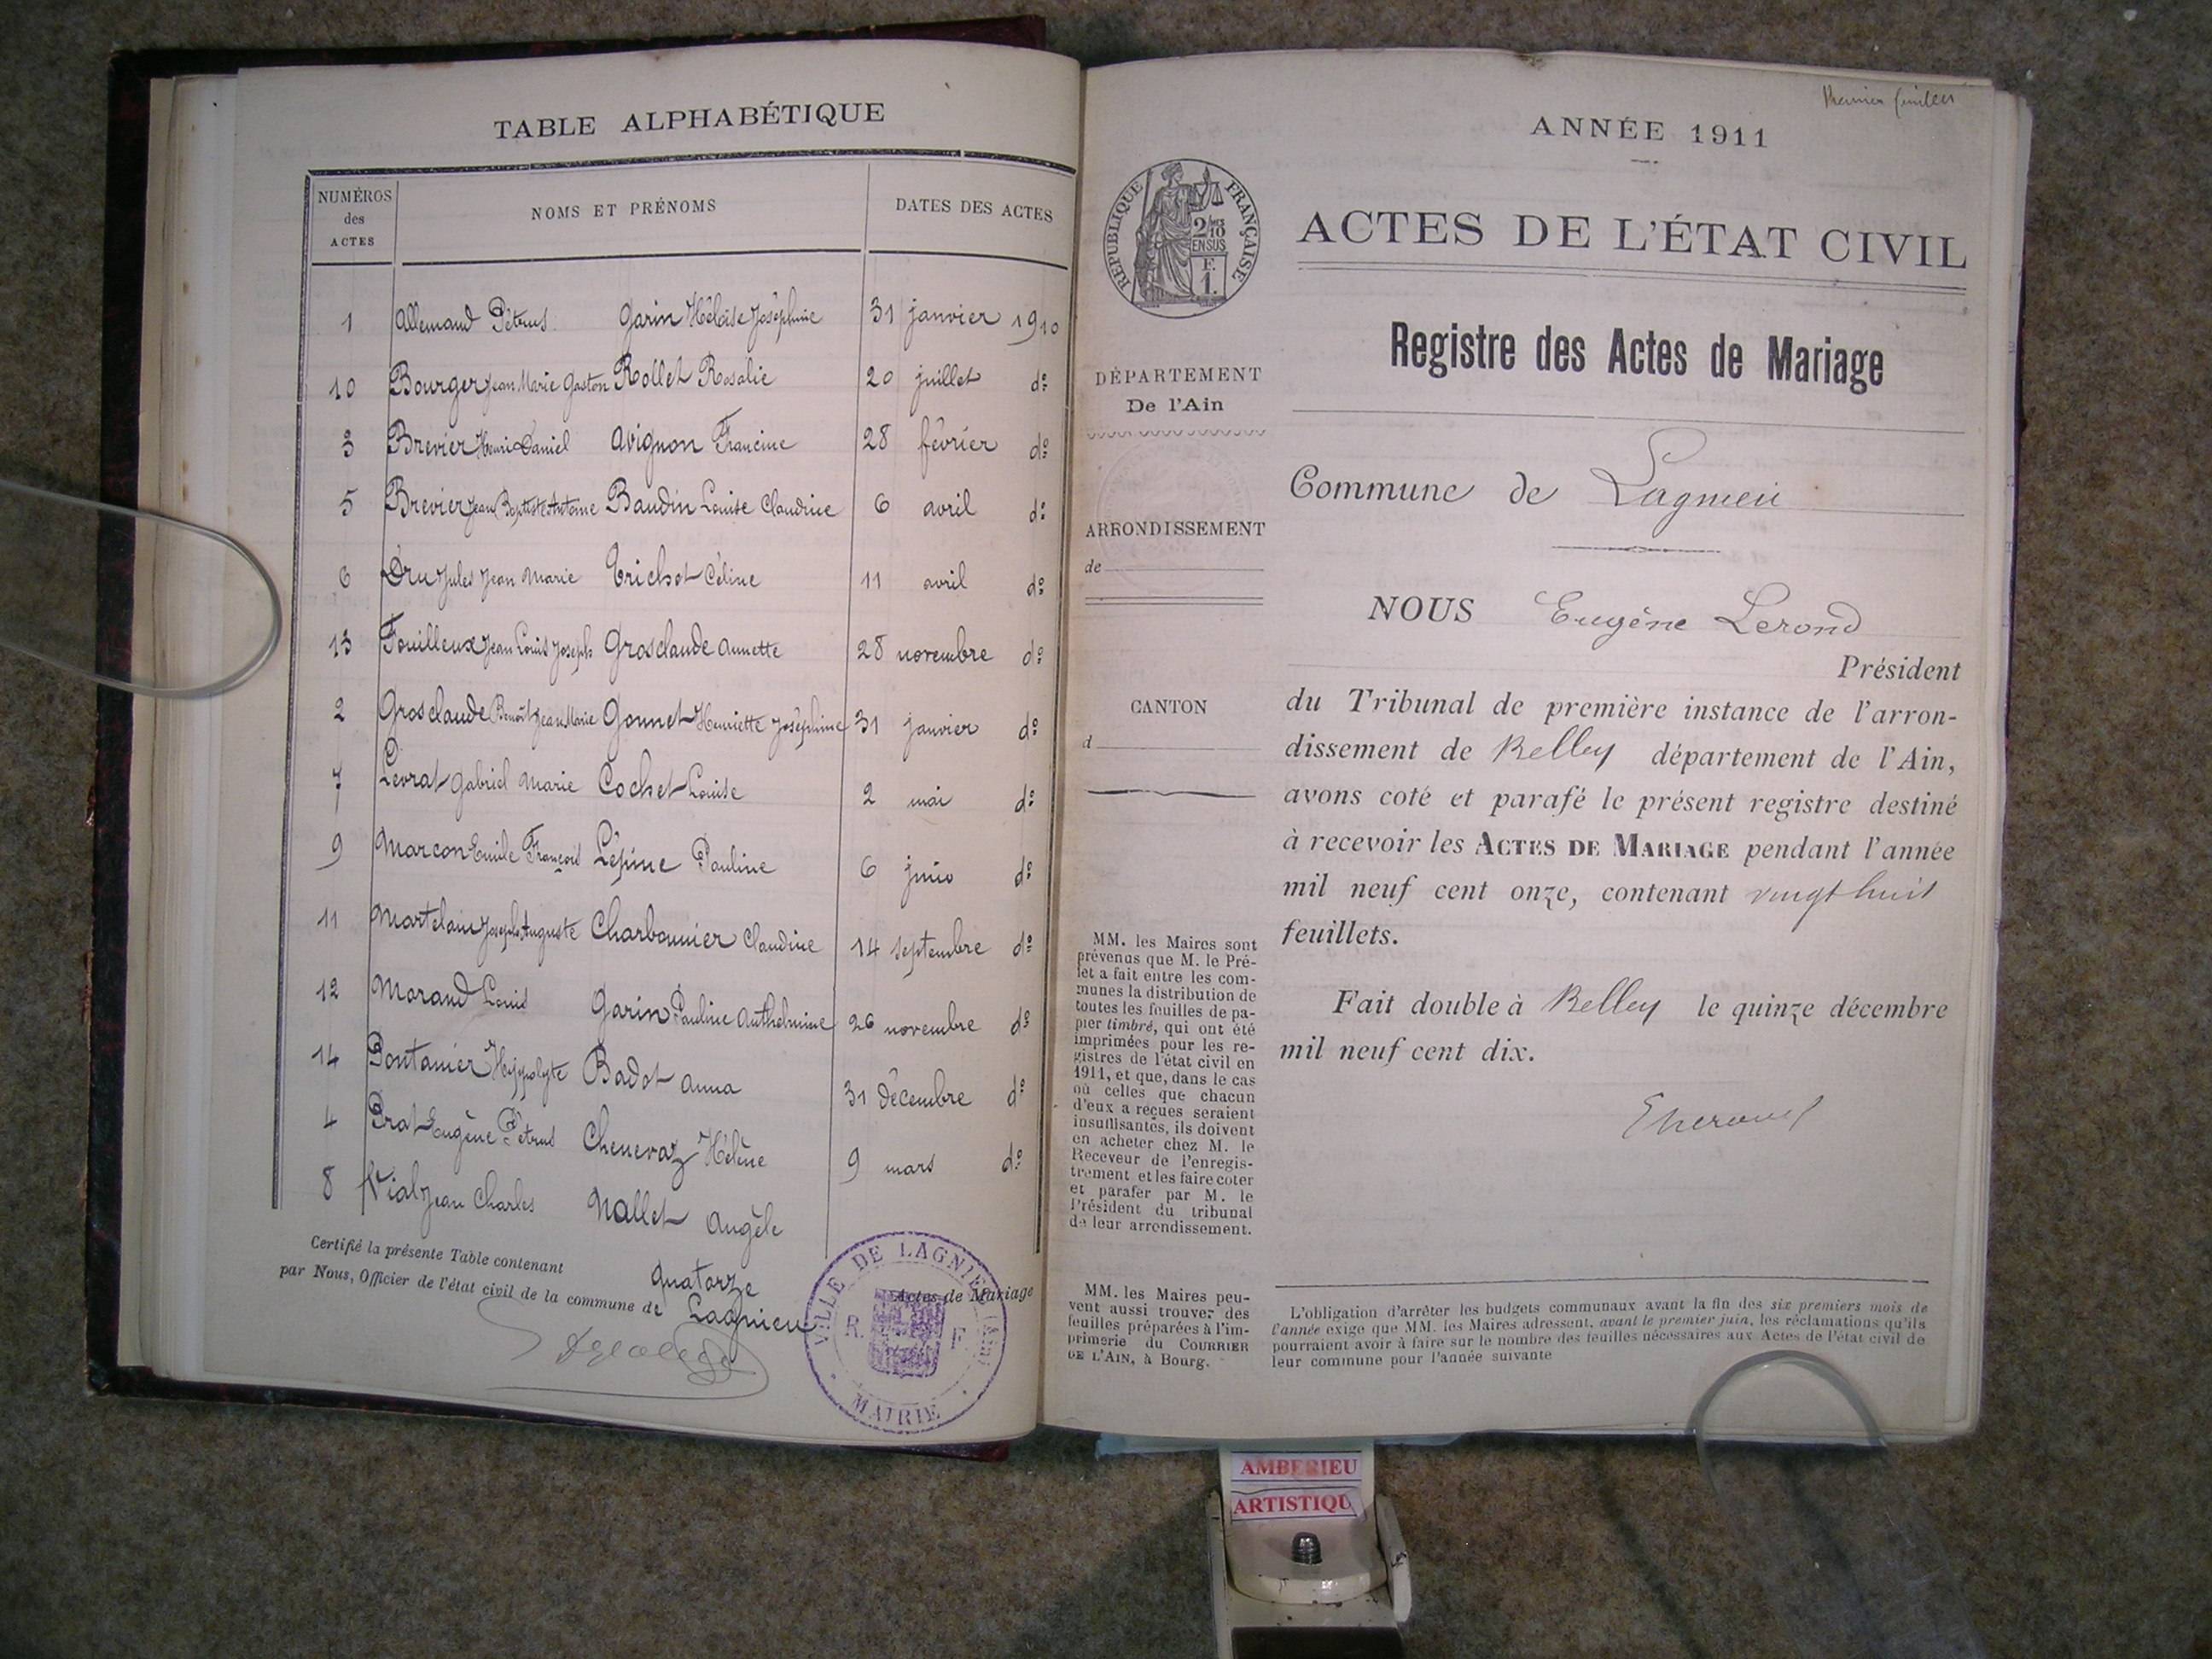 TABLE ALPHABÉTIQUE
NUMÉROS
des
ACTES
NOMS ET PRÉNOMS
DATES DES ACTES
1 Allemand Pétrus Garin Héloïse Joséphine 31 janvier 1910
10 Bourger Jean Marie Gaston Rollet Rosalie 20 juillet do
3 Brevier Henri Daniel Avignon Francine 28 février do
5 Brevier Jean Baptiste Antoine Baudin Louise Claudine 6 avril do
6 Dru Jules Jean Marie Trichot Céline 11 avril do
13 Fouilleux Jean Louis Joseph Grosclaude Annette 28 novembre do
2 Grosclaude Benoît Jean Marie Gonnet Henriette Joséphine 31 janvier do
7 Levrat Gabriel Marie Cochet Louise 2 mai do
9 Marcon Emile François Lépine Pauline 6 juin do
11 Martelain Joseph Auguste Charbonnier Claudine 14 septembre do
12 Morand Louis Garin Pauline Anthelmine 26 novembre do
14 Pontanier Hippolyte Badot Anna 31 décembre do
4 Prat Eugène Pétrus Chenevaz Hélène 9 mars do
8 Vial Jean Charles Mallet Angèle
Certifié la présente Table contenant quatorze Actes de Mariage
par Nous, Officier de l'état civil de la commune de Lagnieu
VILLE DE LAGNIEU
R. F.
MAIRIE
Premier feuillet
ANNÉE 1911
RÉPUBLIQUE FRANÇAISE
2/10
EN SUS
F.
1.
ACTES DE L'ÉTAT CIVIL
Registre des Actes de Mariage
DÉPARTEMENT
De l'Ain
ARRONDISSEMENT
de
CANTON
d
Commune de Lagnieu
NOUS Eugène Lerond
Président
du Tribunal de première instance de l'arron-
dissement de Belley département de l'Ain,
avons coté et parafé le présent registre destiné
à recevoir les ACTES DE MARIAGE pendant l'année
mil neuf cent onze, contenant vingt huit
feuillets.
Fait double à Belley le quinze décembre
mil neuf cent dix.
MM. les Maires sont
prévenus que M. le Pré-
fet a fait entre les com-
munes la distribution de
toutes les feuilles de pa-
pier timbré, qui ont été
imprimées pour les re-
gistres de l'état civil en
1911, et que, dans le cas
où celles que chacun
d'eux a reçues seraient
insuffisantes, ils doivent
en acheter chez M. le
Receveur de l'enregis-
trement et les faire coter
et parafer par M. le
Président du tribunal
de leur arrondissement.
MM. les Maires peu-
vent aussi trouver des
feuilles préparées à l'im-
primerie du COURRIER
DE L'AIN, à Bourg.
L'obligation d'arrêter les budgets communaux avant la fin des six premiers mois de
l'année exige que MM. les Maires adressent, avant le premier juin, les réclamations qu'ils
pourraient avoir à faire sur le nombre des feuilles nécessaires aux Actes de l'état civil de
leur commune pour l'année suivante
AMBERIEU
ARTISTIQU